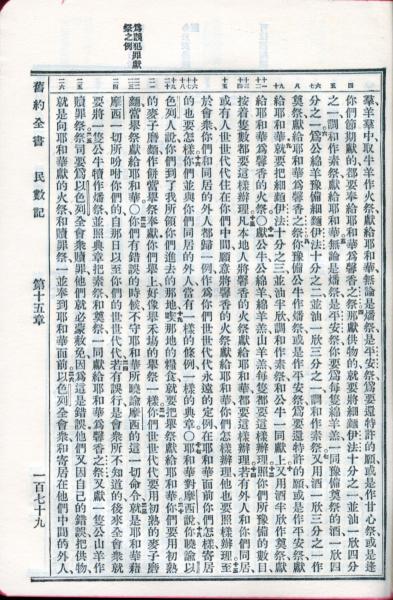 羣羊羣中取牛羊作火祭獻給耶和華無論是燔祭是平安祭爲要還特許的願或是作甘心祭或是逢
你們節期獻的都要奉給耶和華爲馨香之祭那獻供物的就要將細麵伊法十分之一並油一欣四分
之一調和作素祭獻給耶和華無論是燔祭是平安祭你要爲每隻綿羊羔一同豫備奠祭的酒一欣四
分之一爲公綿羊豫備細麵伊法十分之二並油一欣三分之一調和作素祭又用酒一欣三分之一作
奠祭獻給耶和華爲馨香之祭你豫備公牛作燔祭或是作平安祭爲要還特許的願或是作平安祭
給耶和華就要把細麵伊法十分之三並油半欣調和作素祭和公牛一同獻上又用酒半欣作奠祭獻
給耶和華爲馨香的火祭○獻公牛公綿羊綿羊羔山羊羔每隻都要這樣辦理照你們所豫備的數目
按着隻數都要這樣辦理凡本地人將馨香的火祭獻給耶和華都要這樣辦理若有外人和你們同居
或有人世世代代住在你們中間願意將馨香的火祭獻給耶和華你們怎樣辦理他也要照樣辦理至
於會衆你們和同居的外人都歸一例作爲你們世世代代永遠的定例在耶和華面前你們怎樣寄居
的也要怎樣你們並與你們同居的外人當有一樣的條例一樣的典章○耶和華對摩西說你曉諭以
色列人說你們到了我所領你們進去的那地喫那地的糧食就要把舉祭獻給耶和華你們要用初熟
的麥子磨麵作餅當舉祭奉獻你們舉上好像舉禾場的舉祭一樣你們世世代代要用初熟的麥子磨
麵當舉祭獻給耶和華○你們有錯誤的時候不守耶和華所曉諭摩西的這一切命令就是耶和華藉
爲誤犯罪獻
祭之例
摩西一切所吩咐你們的自那日以至你們的世世代代若有誤行是會衆所不知道的後來全會衆就
要將一隻公牛犢作燔祭並照典章把素祭和奠祭一同獻給耶和華爲馨香之祭又獻一隻公山羊作
贖罪祭祭司要爲以色列全會衆贖罪他們就必蒙赦免因爲這是錯誤他們又因自己的錯誤把供物
就是向耶和華獻的火祭和贖罪祭一並奉到耶和華面前以色列全會衆和寄居在他們中間的外人
舊約全書 民數記 第十五章 一百七十九